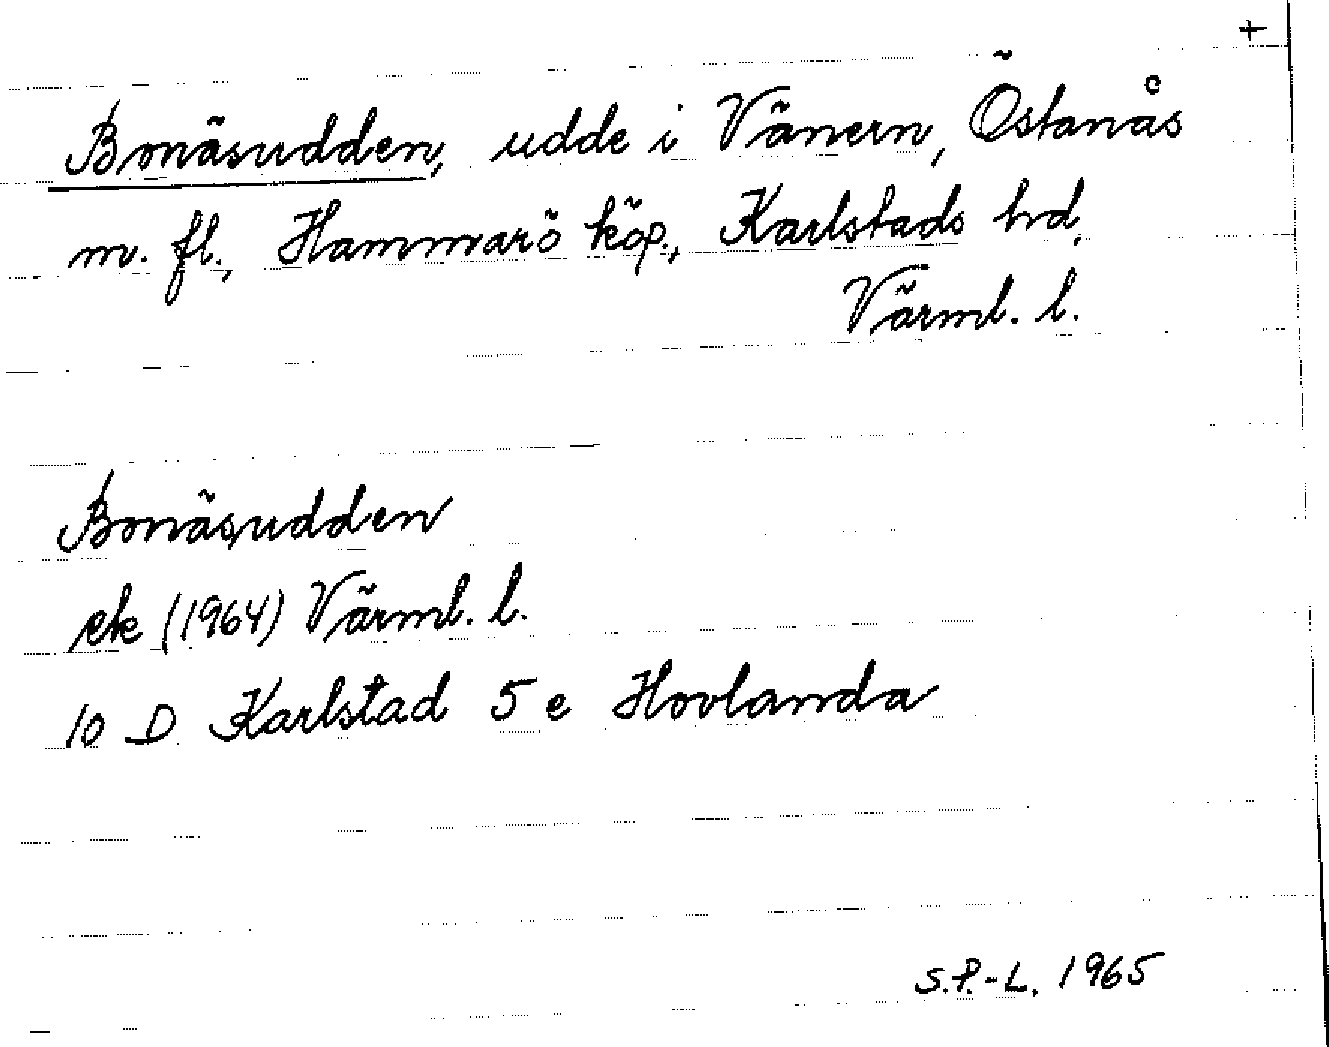 +
Bonäsudden, udde i Vänern, Östanås
m. fl., Hammarö köp., Karlstads hd,
Värml. l.
Bonäsudden
ek (1964) Värml. l.
10 D Karlstad 5 e Hovlanda
S.P.-L. 1965